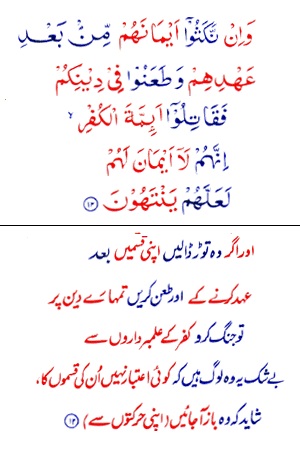 وَاِنْ نَّكَثُوْۤا اَيْمَانَهُمْ مِّنْۢ بَعْدِ
عَهْدِهِمْ وَطَعَنُوْا فِىْ دِيْنِكُمْ
فَقَاتِلُوْۤا اَئِمَّةَ الْكُفْرِ ۙ
اِنَّهُمْ لَاۤ اَيْمَانَ لَهُمْ
لَعَلَّهُمْ يَنْتَهُوْنَ ﴿۱۲﴾
اور اگر وہ توڑ ڈالیں اپنی قسمیں بعد
عہد کرنے کے اور طعن کریں تمہارے دین پر
تو جنگ کرو کفر کے علمبرداروں سے
بے شک یہ وہ لوگ ہیں کہ کوئی اعتبار نہیں اُن کی قسموں کا،
شاید کہ وہ باز آ جائیں (اپنی حرکتوں سے) ﴿۱۲﴾